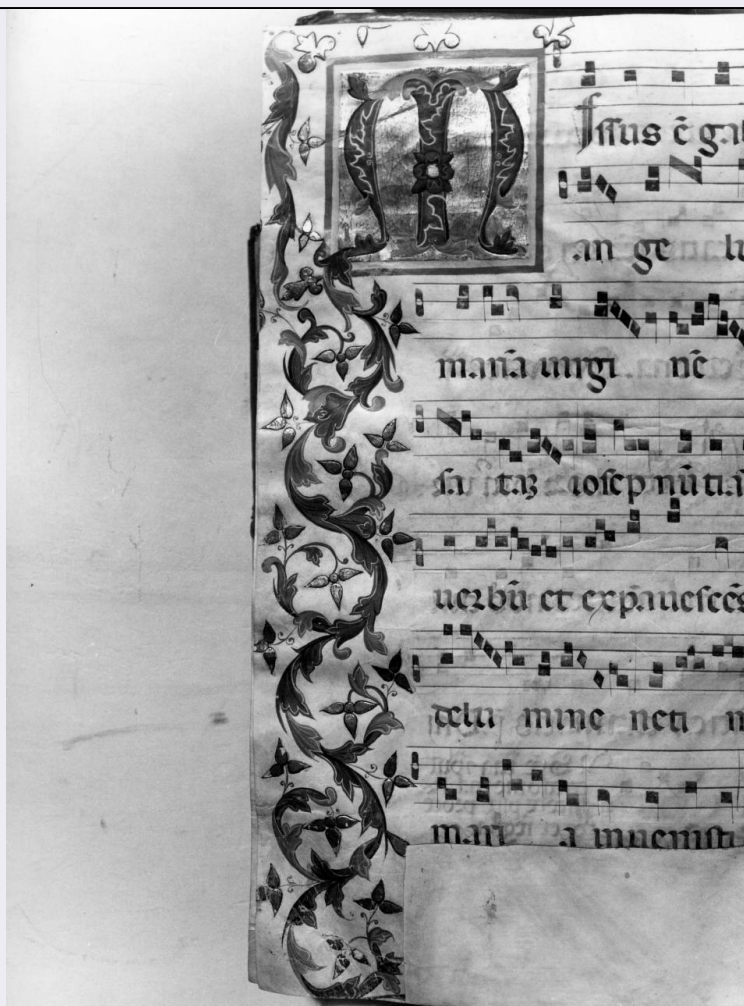 M issus ē ga
an ge
maria uirgi nē
sa taʒ iosep nūtia
uerbū et expauescēs
de lu mine neti
mari a inuenisti